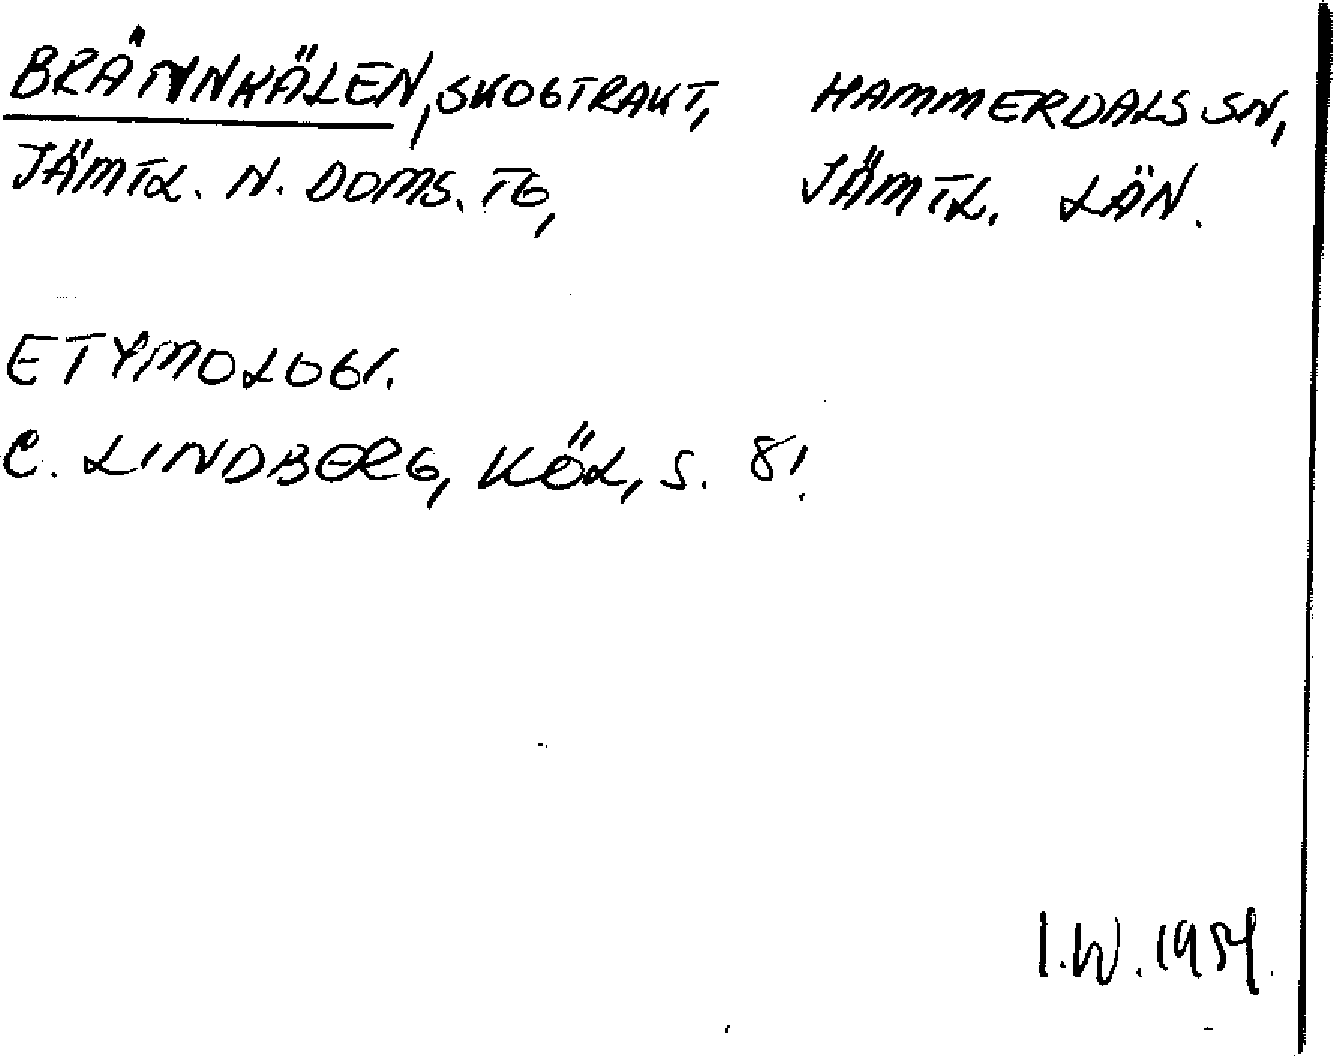 BRÄNNKÄLEN, SKOGTRAKT, HAMMERDALS SN,
JÄMTL. N. DOMS. TG, JÄMTL. LÄN.
ETYMOLOGI.
C. LINDBERG, KÖL, S. 81.
I.W. 1954.